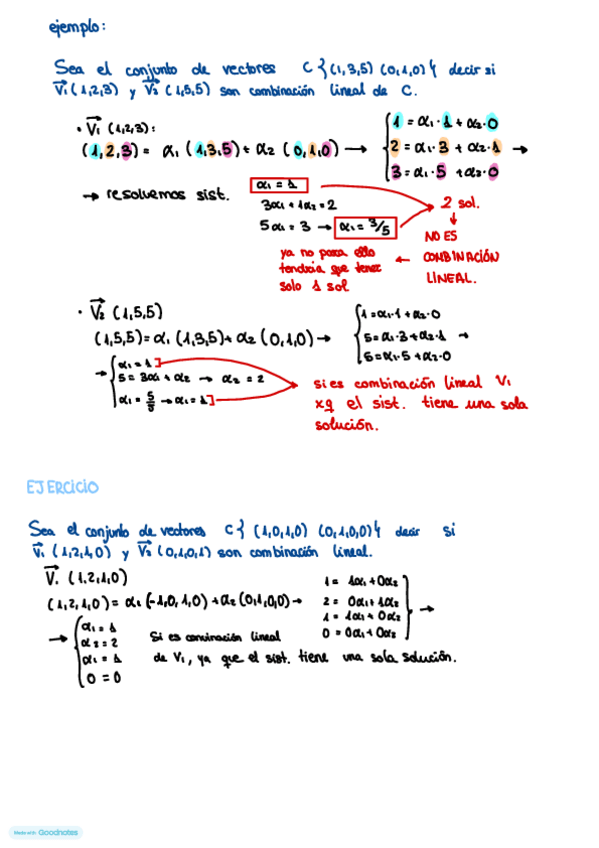 ejemplo:
Sea el conjunto de vectores C { (1,3,5) (0,1,0) } decir si
V₁ (1,2,3) y V₂ (1,5,5) son combinación lineal de C.
• V₁ (1,2,3):
(1,2,3) = α₁ (1,3,5) + α₂ (0,1,0) →
1 = α₁ · 1 + α₂ · 0
2 = α₁ · 3 + α₂ · 1 →
3 = α₁ · 5 + α₂ · 0
→ resolvemos sist.
α₁ = 1
3α₁ + 1α₂ = 2
5α₁ = 3 → α₁ = 3/5
2 sol.
↓
NO ES
COMBINACIÓN
LINEAL.
← ya no para ello
tendría que tener
solo 1 sol
• V₂ (1,5,5)
(1,5,5) = α₁ (1,3,5) + α₂ (0,1,0) →
1 = α₁ · 1 + α₂ · 0
5 = α₁ · 3 + α₂ · 1 →
5 = α₁ · 5 + α₂ · 0
→ α₁ = 1
5 = 3α₁ + α₂ → α₂ = 2
α₁ = 5/5 → α₁ = 1
si es combinación lineal V₁
xq el sist. tiene una sola
solución.
EJERCICIO
Sea el conjunto de vectores C { (1,0,1,0) (0,1,0,0) } decir si
V₁ (1,2,1,0) y V₂ (0,1,0,1) son combinación lineal.
V₁ (1,2,1,0)
(1,2,1,0) = α₁ (-1,0,1,0) + α₂ (0,1,0,0) →
1 = 1α₁ + 0α₂
2 = 0α₁ + 1α₂
1 = 1α₁ + 0α₂ →
0 = 0α₁ + 0α₂
→ α₁ = 1
α₂ = 2
α₁ = 1
0 = 0
Si es convinación lineal
de V₁, ya que el sist. tiene una sola solución.
Made with Goodnotes